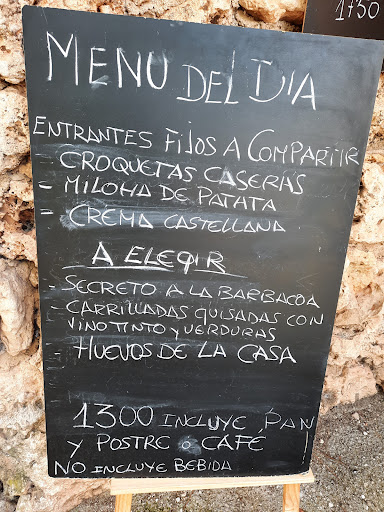 1730
MENU DEL DIA
ENTRANTES FIJOS A COMPARTIR
- CROQUETAS CASERAS
- MILOHA DE PATATA
- CREMA CASTELLANA
A ELEGIR
- SECRETO A LA BARBACOA
- CARRILLADAS GUISADAS CON
VINO TINTO y VERDURAS
- HUEVOS DE LA CASA
1300 INCLUYE PAN
y POSTRE ó CAFÉ
NO INCLUYE BEBIDA